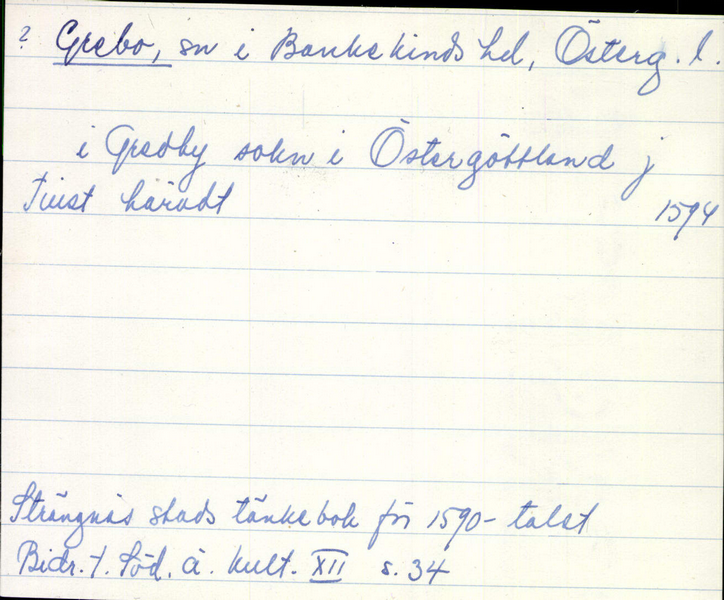 ? Grebo, sn i Bankekinds hd, Österg. l.
i Gredby sokn i Östergöttland j
Tiust häradt 1594
Strängnäs stads tänkebok för 1590-talet
Bidr. t. Söd. ä. kult. XII s. 34